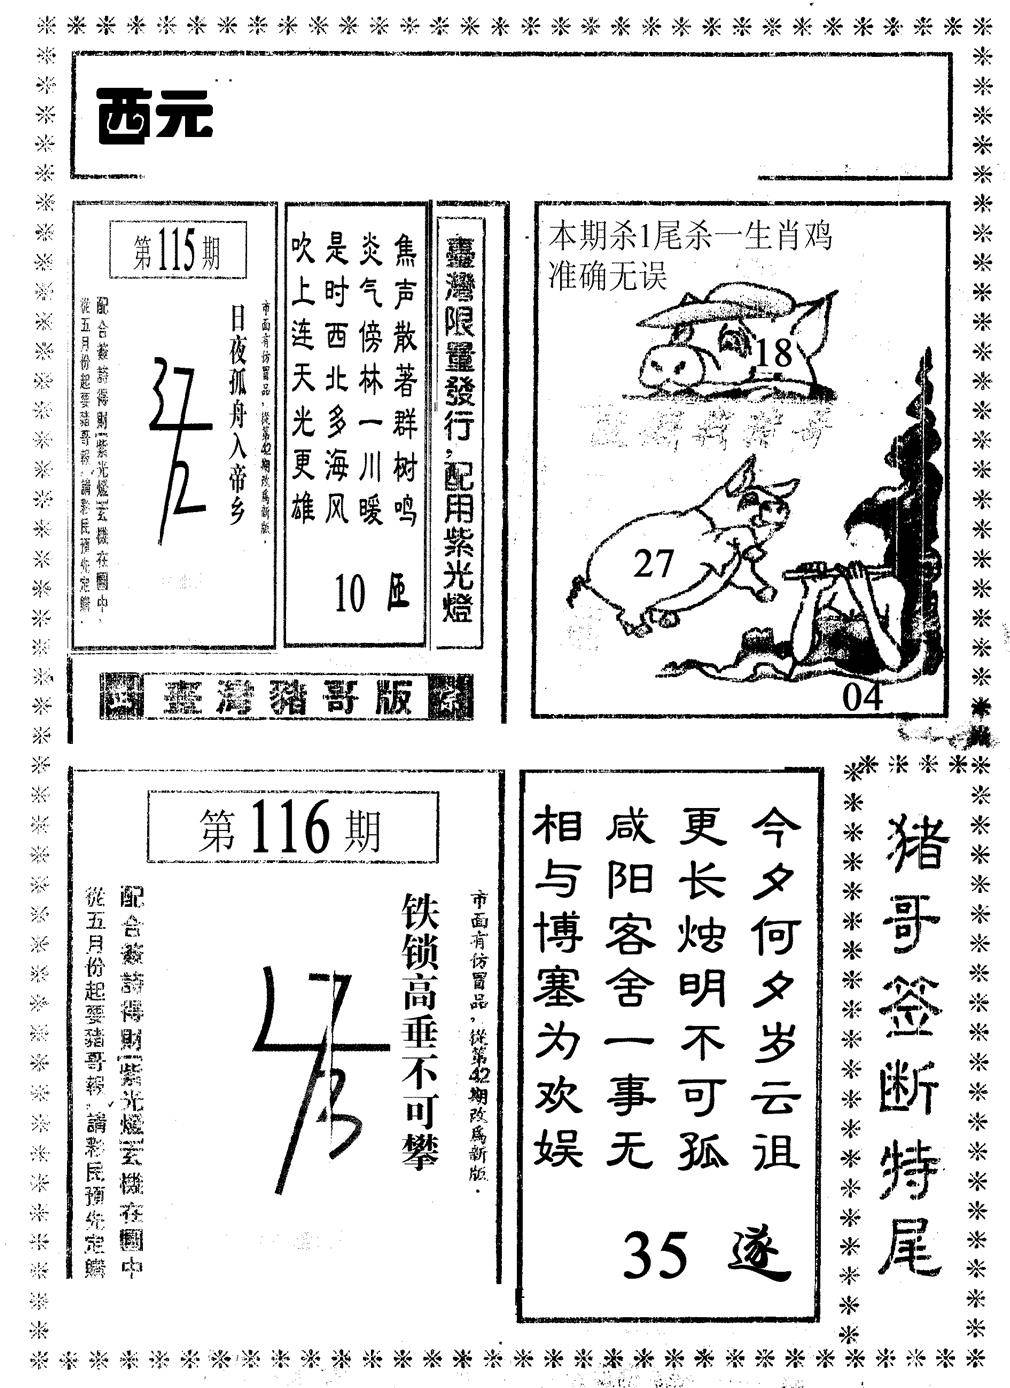 西元
第115期
市面有仿冒品，從第42期改爲新版．
日夜孤舟入帝乡
37
12
配合簽詩得財紫光燈玄機在圖中．
從五月份起要豬哥報，請彩民預先定購．
焦声散著群树鸣
炎气傍林一川暖
是时西北多海风
吹上连天光更雄
10 匝
臺灣限量發行，配用紫光燈
臺灣豬哥版
本期杀1尾杀一生肖鸡
准确无误
18
27
04
第116期
市面有仿冒品，從第42期改爲新版．
铁锁高垂不可攀
配合簽詩得財紫光燈玄機在圖中
從五月份起要豬哥報，請彩民預先定購
今夕何夕岁云徂
更长烛明不可孤
咸阳客舍一事无
相与博塞为欢娱
35 遂
猪哥签断特尾